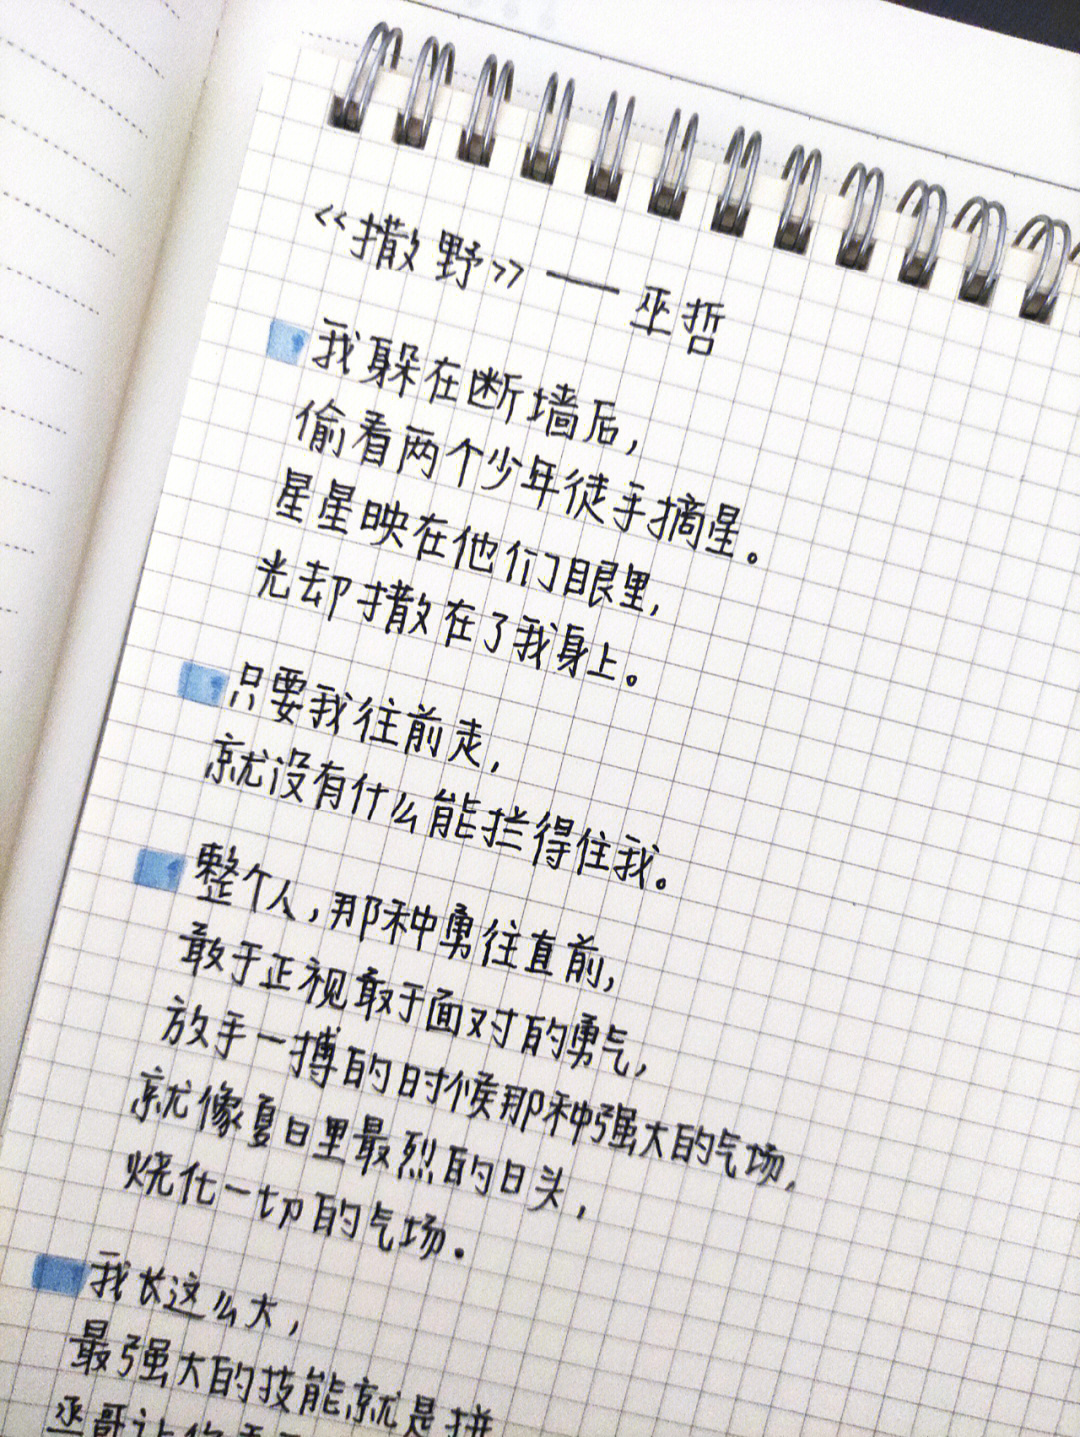 《撒野》——巫哲
我躲在断墙后，
偷看两个少年徒手摘星。
星星映在他们眼里，
光却撒在了我身上。
只要我往前走，
就没有什么能拦得住我。
整个人，那种勇往直前，
敢于正视敢于面对的勇气，
放手一搏的时候那种强大的气场，
就像夏日里最烈的日头，
烧化一切的气场。
我长这么大，
最强大的技能就是拼
丞哥让你看